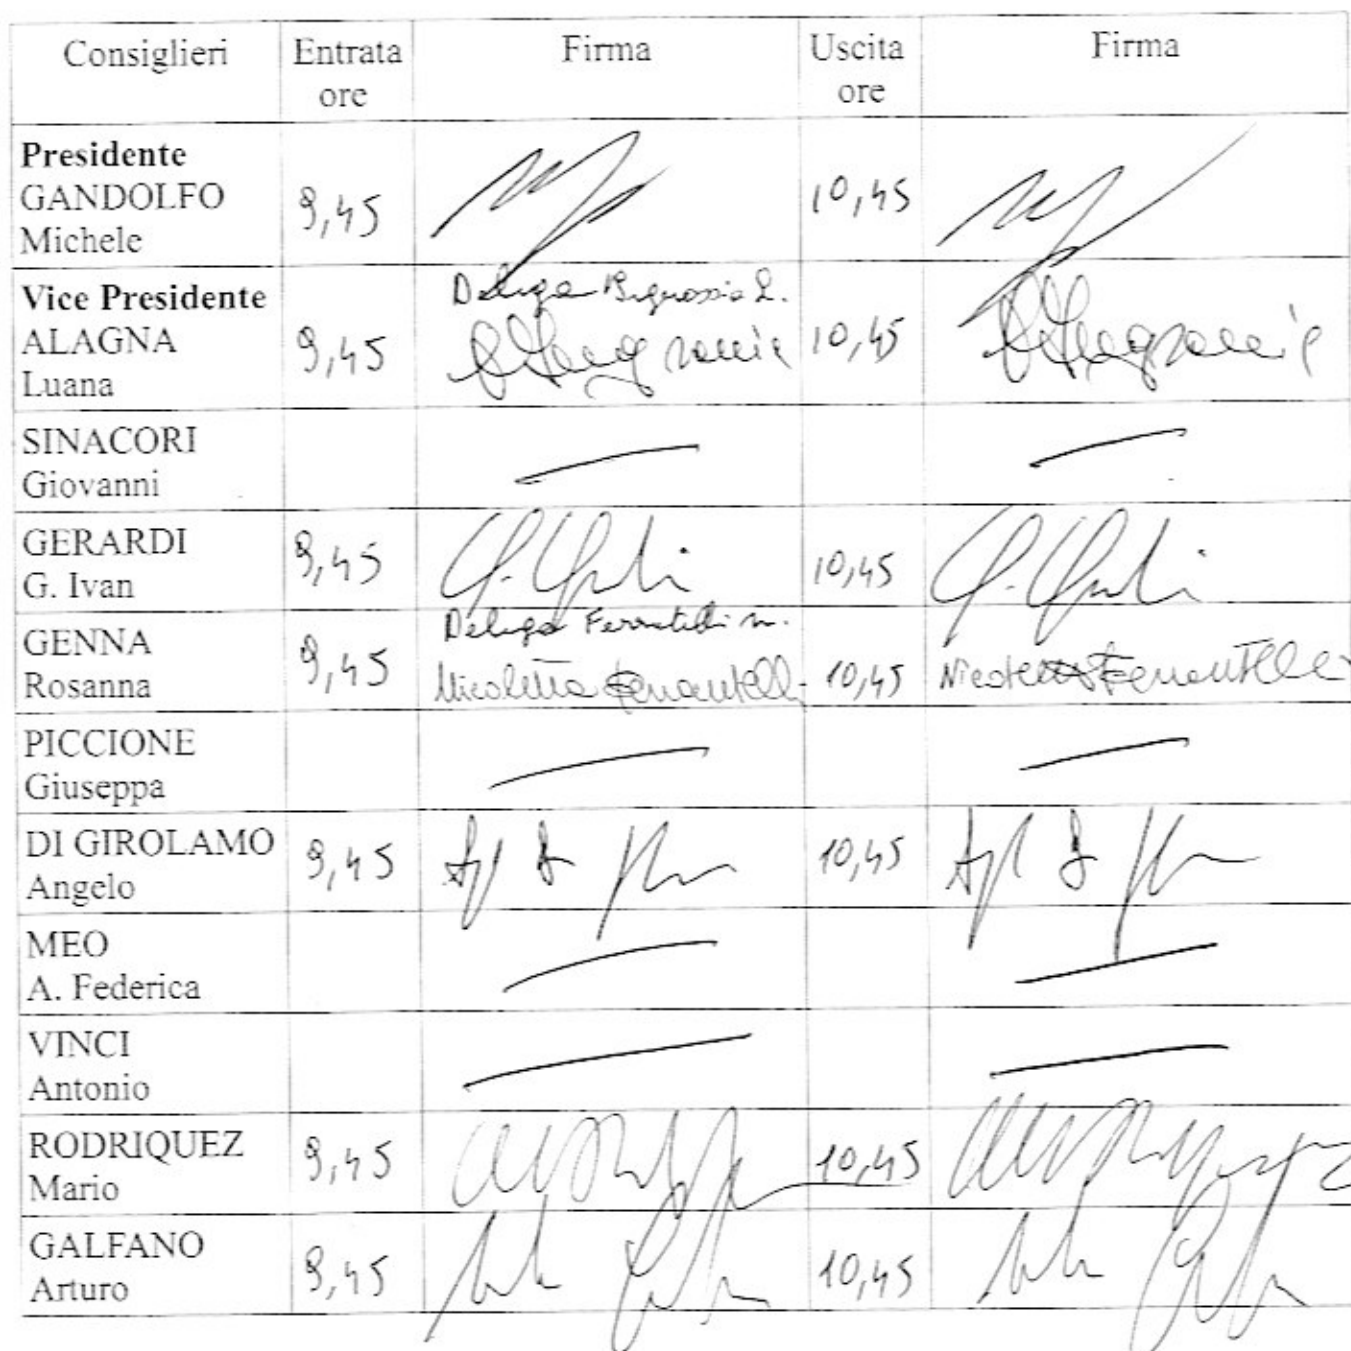 Consiglieri Entrata ore Firma Uscita ore Firma
Presidente
GANDOLFO
Michele
9,45 10,45
Vice Presidente
ALAGNA
Luana
9,45 Delega 10,45
SINACORI
Giovanni
GERARDI
G. Ivan
9,45 10,45
GENNA
Rosanna
9,45 Delega Ferrantelli n. 10,45
Nicoletta Ferrantelli Nicoletta Ferrantelli
PICCIONE
Giuseppa
DI GIROLAMO
Angelo
9,45 10,45
MEO
A. Federica
VINCI
Antonio
RODRIQUEZ
Mario
9,45 10,45
GALFANO
Arturo
9,45 10,45